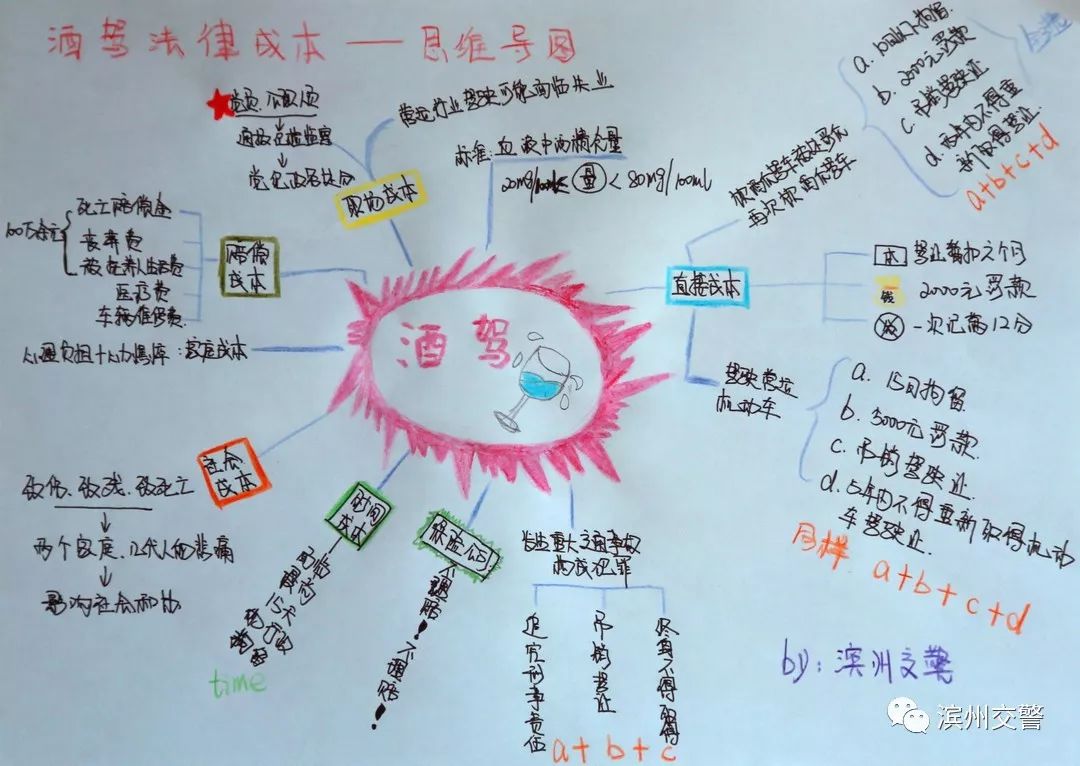 酒驾法律成本——思维导图
酒驾
职场成本
营运行业驾驶可能面临失业
★党员、公职人员
通报纪检监察
党纪政务处分
标准:血液中酒精含量
20mg/100ml≤量<80mg/100ml
直接成本
饮酒后驾车被处罚后
再次饮酒后驾车
a. 10日以下拘留
b. 2000元罚款
c. 吊销驾驶证
d. 5年内不得重
新取得驾证
a+b+c+d
本 驾证暂扣六个月
钱 2000元罚款
分 一次记满12分
驾驶营运
机动车
a. 15日拘留
b. 5000元罚款
c. 吊销驾驶证
d. 5年内不得重新取得机动
车驾驶证
同样 a+b+c+d
赔偿成本
100万余元
死亡赔偿金
丧葬费
被抚养人生活费
医疗费
车辆维修费
心理负担+心力憔悴:家庭成本
社会成本
致伤、致残、致死亡
两个家庭、几代人的悲痛
影响社会和协
时间成本
面临最高15天
time
保险公司
不理赔!不理赔!
发生重大交通事故
构成犯罪
追究刑事责任
吊销驾证
终身不得取得
a+b+c
by:滨州交警
滨州交警